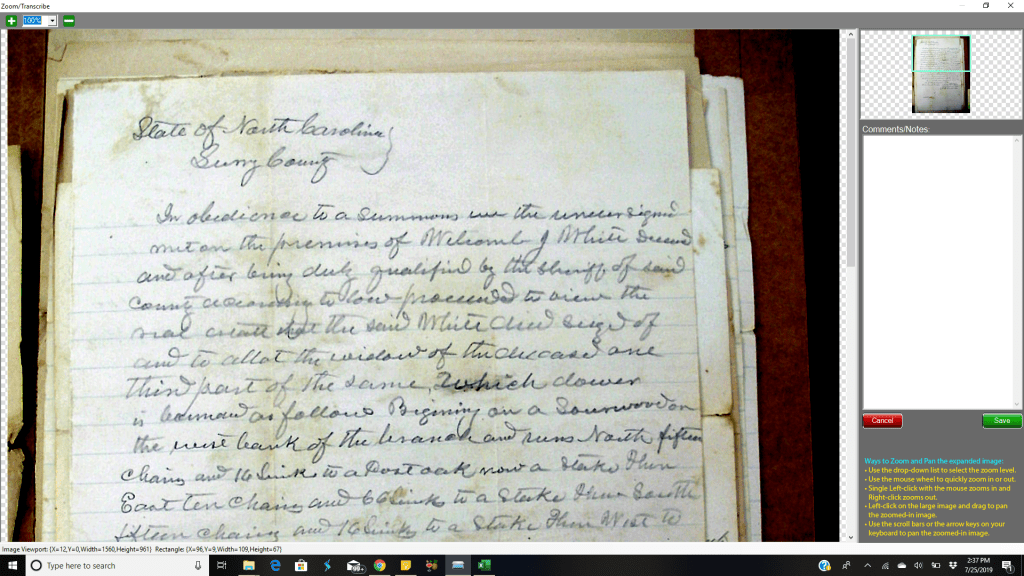 Zoom/Transcribe
100%
State of North Carolina
Surry County
In obedience to a summons we the undersigned
met on the premises of Welcomb J White Deceasd
and after being duly qualified by the sheriff of said
County according to law proceeded to view the
real estate that the said White died seized of
and to allot the widow of the deceased one
third part of the same, which dower
is bounded as follows Begining on a Sourwood on
the west bank of the branch and runs North fifteen
chains and 16 Links to a Post oak now a Stake Then
East ten chains and 66 Links to a Stake Then South
fifteen chains and 16 Links to a Stake Then West to
Comments/Notes:
Cancel
Save
Ways to Zoom and Pan the expanded image:
• Use the drop-down list to select the zoom level.
• Use the mouse wheel to quickly zoom in or out.
• Single Left-click with the mouse zooms in and
Right-click zooms out.
• Left-click on the large image and drag to pan
the zoomed-in image.
• Use the scroll bars or the arrow keys on your
keyboard to pan the zoomed-in image.
Image Viewport: {X=12,Y=0,Width=1560,Height=961} Rectangle: {X=96,Y=9,Width=109,Height=67}
Type here to search
99+
2:37 PM
7/25/2019